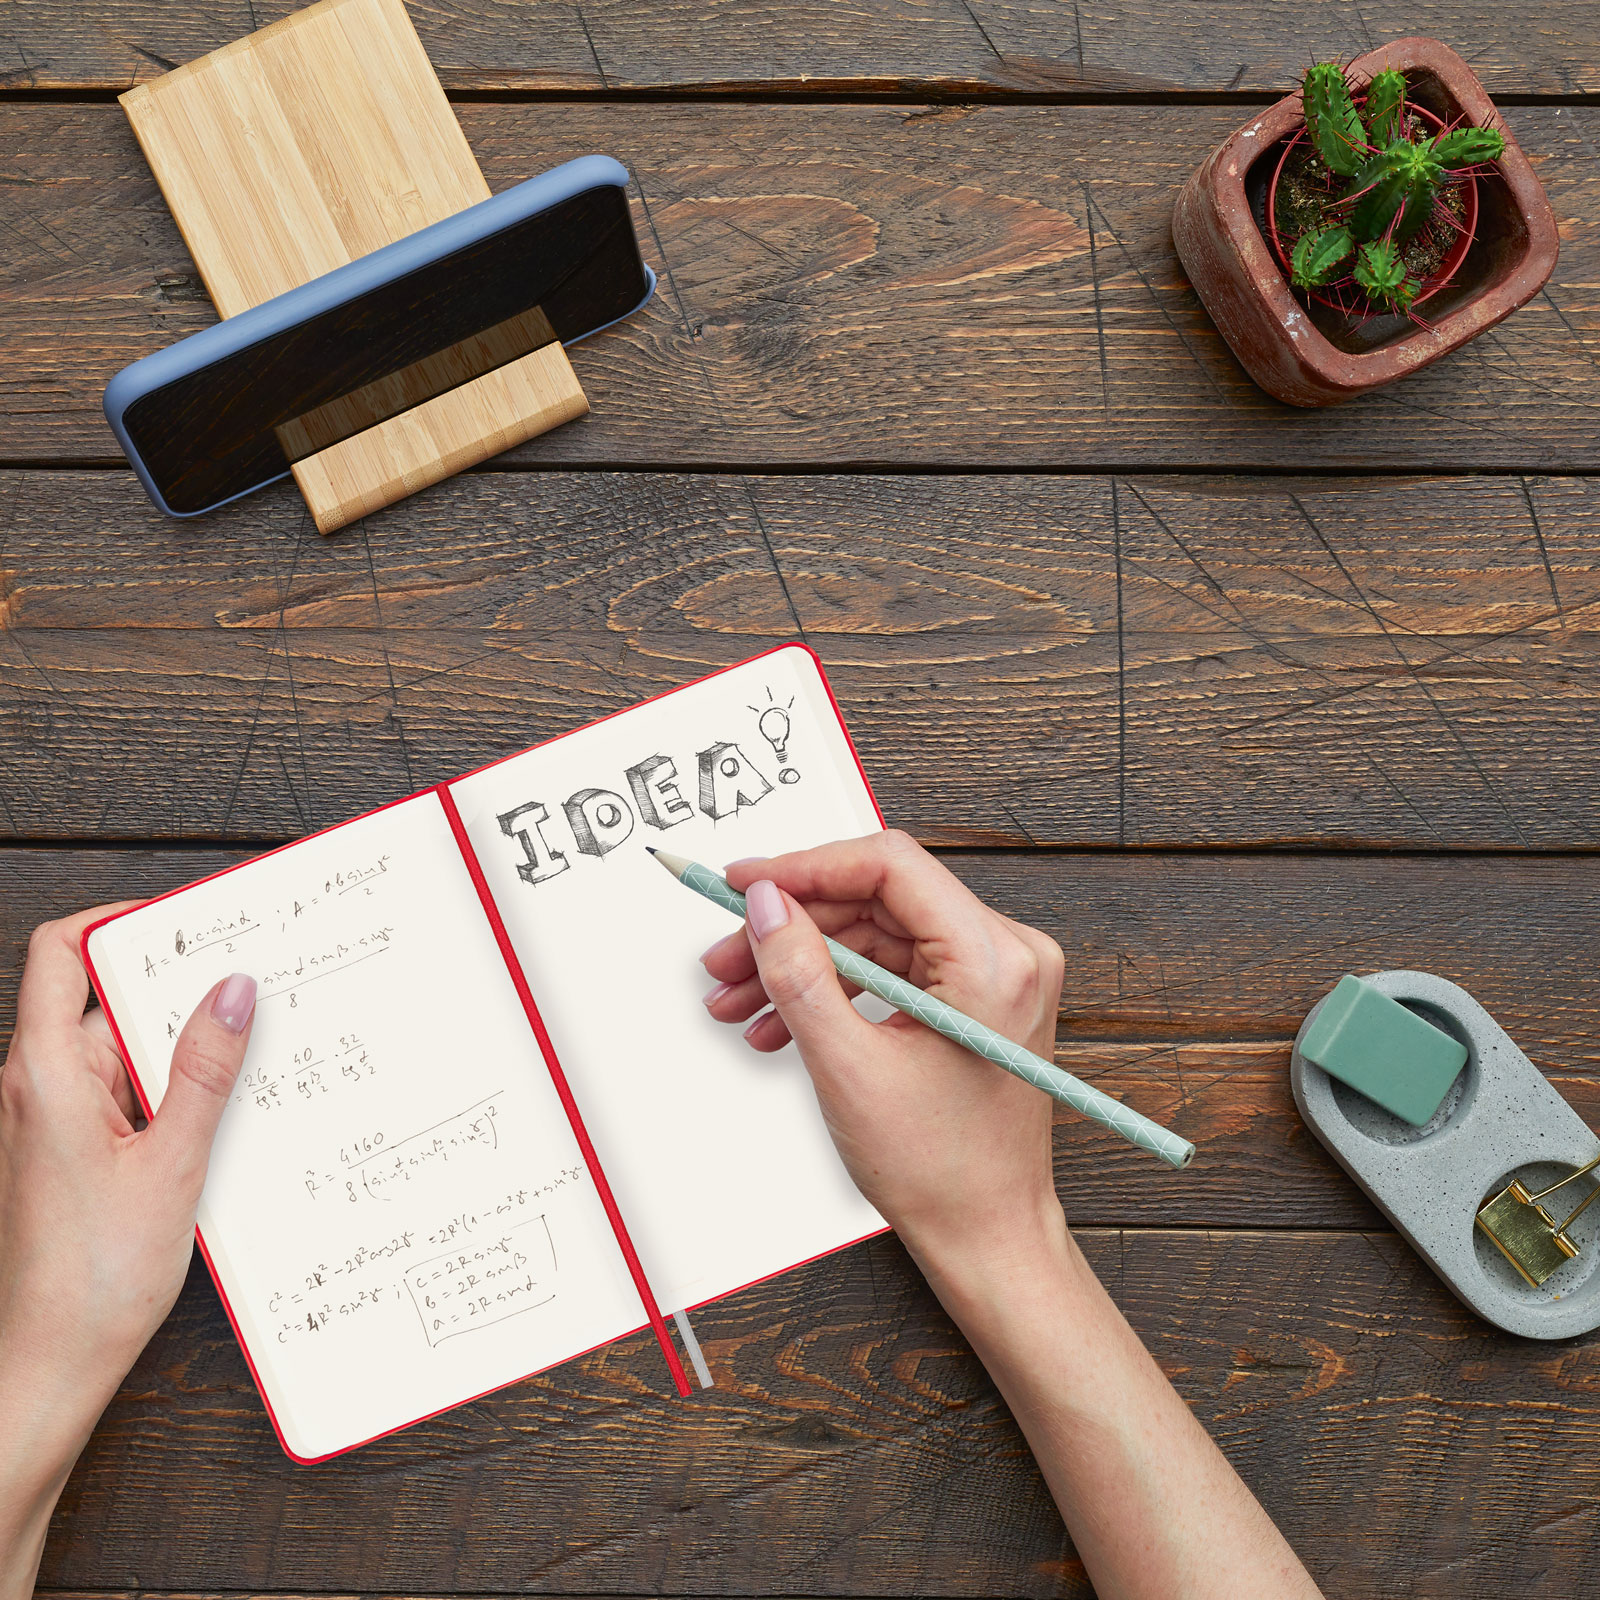 A = b·c·sinα/2 ; A = ab sinγ/2
A³ sinα sinβ·sinγ/8
= 26/tg γ/2 · 40/tg β/2 · 32/tg α/2
R³ = 4160/8(sin α/2 sin β/2 sin γ/2)²
c² = 2R² - 2R² cos2γ = 2R²(1 - cos²γ + sin²γ
c² = 4R² sin²γ ; c = 2R sinγ
b = 2R sinβ
a = 2R sinα
IDEA!